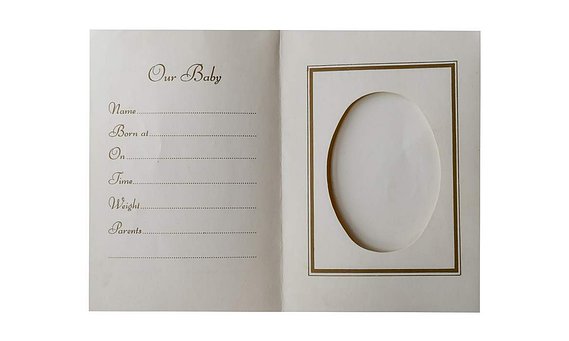 Our Baby
Name
Born at
On
Time
Weight
Parents